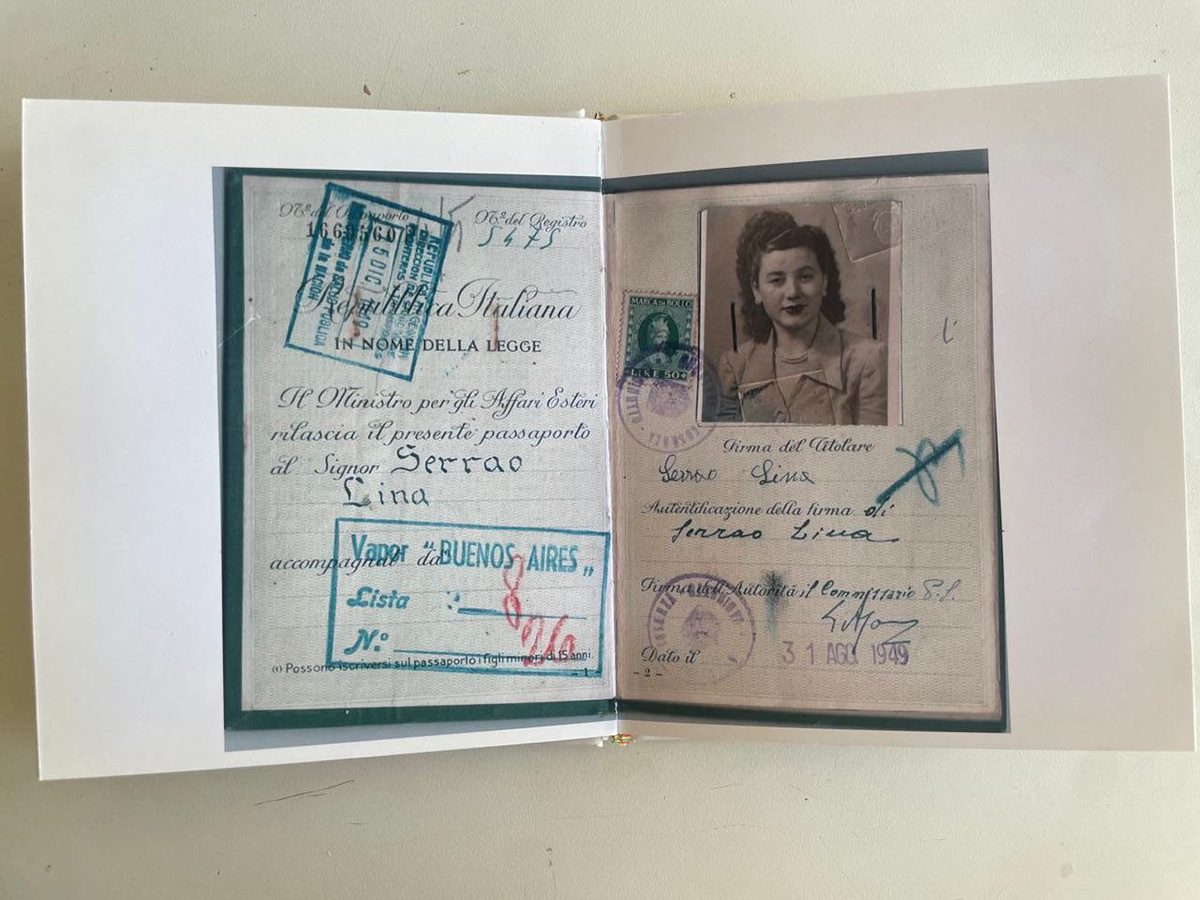 Nº del Passaporto
Nº del Registro
5475
REPUBLICA
DIRECCION
de la NACION
5 DIC
Repubblica Italiana
IN NOME DELLA LEGGE
Il Ministro per gli Affari Esteri
rilascia il presente passaporto
al Signor Serrao
Lina
accompagnat da
Vapor "BUENOS AIRES"
Lista : 8
N.º
(1) Possono iscriversi sul passaporto i figli minori di 15 anni.
- 1 -
MARCA DA BOLLO
LIRE 50
Firma del Titolare
Serrao Lina
Autentificazione della firma di
Serrao Lina
Firma dell'Autorità il Commissario P.S.
Dato il 31 AGO. 1949
- 2 -